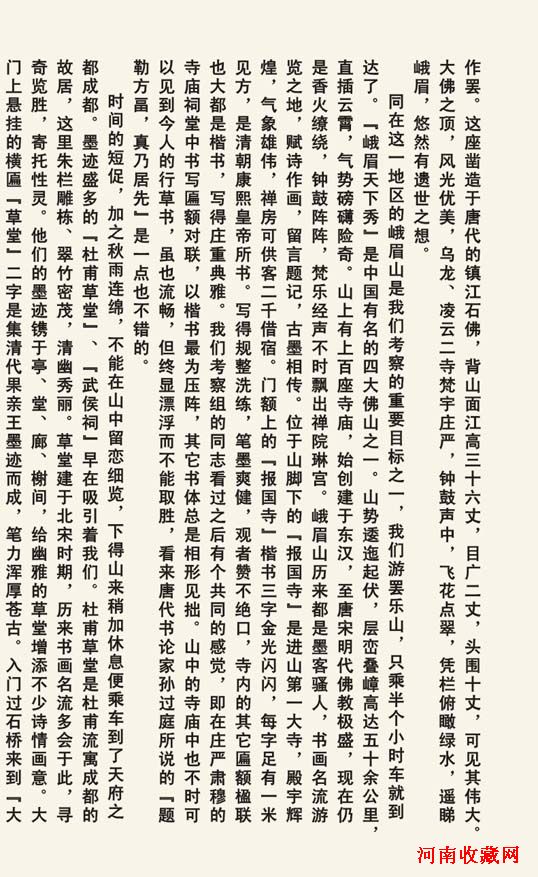 作罢。这座凿造于唐代的镇江石佛，背山面江高三十六丈，目广二丈，头围十丈，可见其伟大。
大佛之顶，风光优美，乌龙、凌云二寺梵宇庄严，钟鼓声中，飞花点翠，凭栏俯瞰绿水，遥睇
峨眉，悠然有遗世之想。
同在这一地区的峨眉山是我们考察的重要目标之一，我们游罢乐山，只乘半个小时车就到
达了。『峨眉天下秀』是中国有名的四大佛山之一。山势逶迤起伏，层峦叠嶂高达五十余公里，
直插云霄，气势磅礴险奇。山上有上百座寺庙，始创建于东汉，至唐宋明代佛教极盛，现在仍
是香火缭绕，钟鼓阵阵，梵乐经声不时飘出禅院琳宫。峨眉山历来都是墨客骚人，书画名流游
览之地，赋诗作画，留言题记，古墨相传。位于山脚下的『报国寺』是进山第一大寺，殿宇辉
煌，气象雄伟，禅房可供客二千借宿。门额上的『报国寺』楷书三字金光闪闪，每字足有一米
见方，是清朝康熙皇帝所书。写得规整洗练，笔墨爽健，观者赞不绝口，寺内的其它匾额楹联
也大都是楷书，写得庄重典雅。我们考察组的同志看过之后有个共同的感觉，即在庄严肃穆的
寺庙祠堂中书写匾额对联，以楷书最为压阵，其它书体总是相形见拙。山中的寺庙中也不时可
以见到今人的行草书，虽也流畅，但终显漂浮而不能取胜，看来唐代书论家孙过庭所说的『题
勒方畐，真乃居先』是一点也不错的。
时间的短促，加之秋雨连绵，不能在山中留恋细览，下得山来稍加休息便乘车到了天府之
都成都。墨迹盛多的『杜甫草堂』、『武侯祠』早在吸引着我们。杜甫草堂是杜甫流寓成都的
故居，这里朱栏雕栋、翠竹密茂，清幽秀丽。草堂建于北宋时期，历来书画名流多会于此，寻
奇览胜，寄托性灵。他们的墨迹镌于亭、堂、廊、榭间，给幽雅的草堂增添不少诗情画意。大
门上悬挂的横匾『草堂』二字是集清代果亲王墨迹而成，笔力浑厚苍古。入门过石桥来到『大
河南收藏网